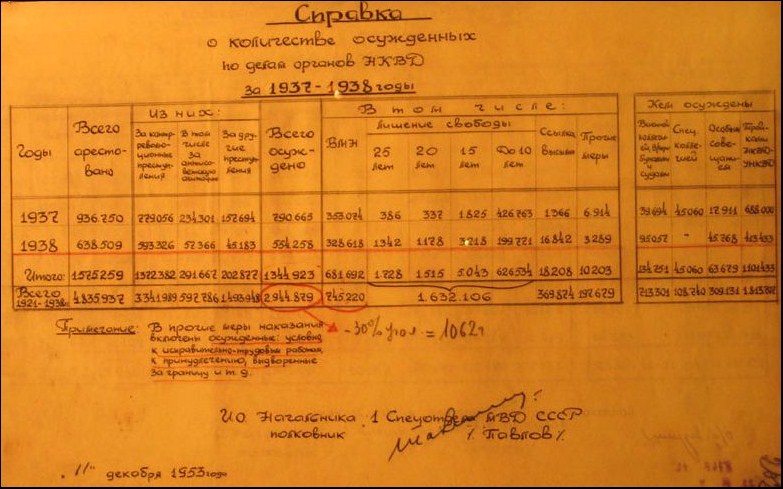 Справка
о количестве осужденных
по делам органов НКВД
за 1937-1938 годы
Годы
Всего аресто-вано
Из них:
За контр-революци-онные преступ-ления
В том числе за антисо-ветскую агитацию
За дру-гие преступ-ления
Всего осуж-дено
В том числе:
ВМН
Лишение свободы
25 лет
20 лет
15 лет
До 10 лет
Ссылка высылка
Прочие меры
Кем осуждены
Спец. коллегией
Особым сове-щанием
1937 936.750 779056 234.301 157.694 790.665 353.074 386 337 1.825 426.763 1.366 6.914 39.694 45.060 17.911 688.000
1938 638.509 593.326 57.366 45.183 554.258 328.618 1342 1.178 3.218 199.771 16.842 3.289 95.057 - 45.768 413.433
Итого: 1575259 1372382 291.667 202.877 1344.923 681.692 1.728 1.515 5.043 626.534 18.208 10.203 134.751 45.060 63.679 1101433
Всего 1921-1938г. 4.835.937 3.341.989 597.786 1.493.948 2.944.879 745.220 1.632.106 369.874 197.679 713.301 108.740 309.131
Примечание: В прочие меры наказания
включены осужденные: условно
к исправительно-трудовым работам,
к принудлечению, выдворенные
за границу и т.д.
-30% уол = 1062т
И.О. Начальника 1 Спецотдела МВД СССР
полковник /Павлов/
„11" декабря 1953 года